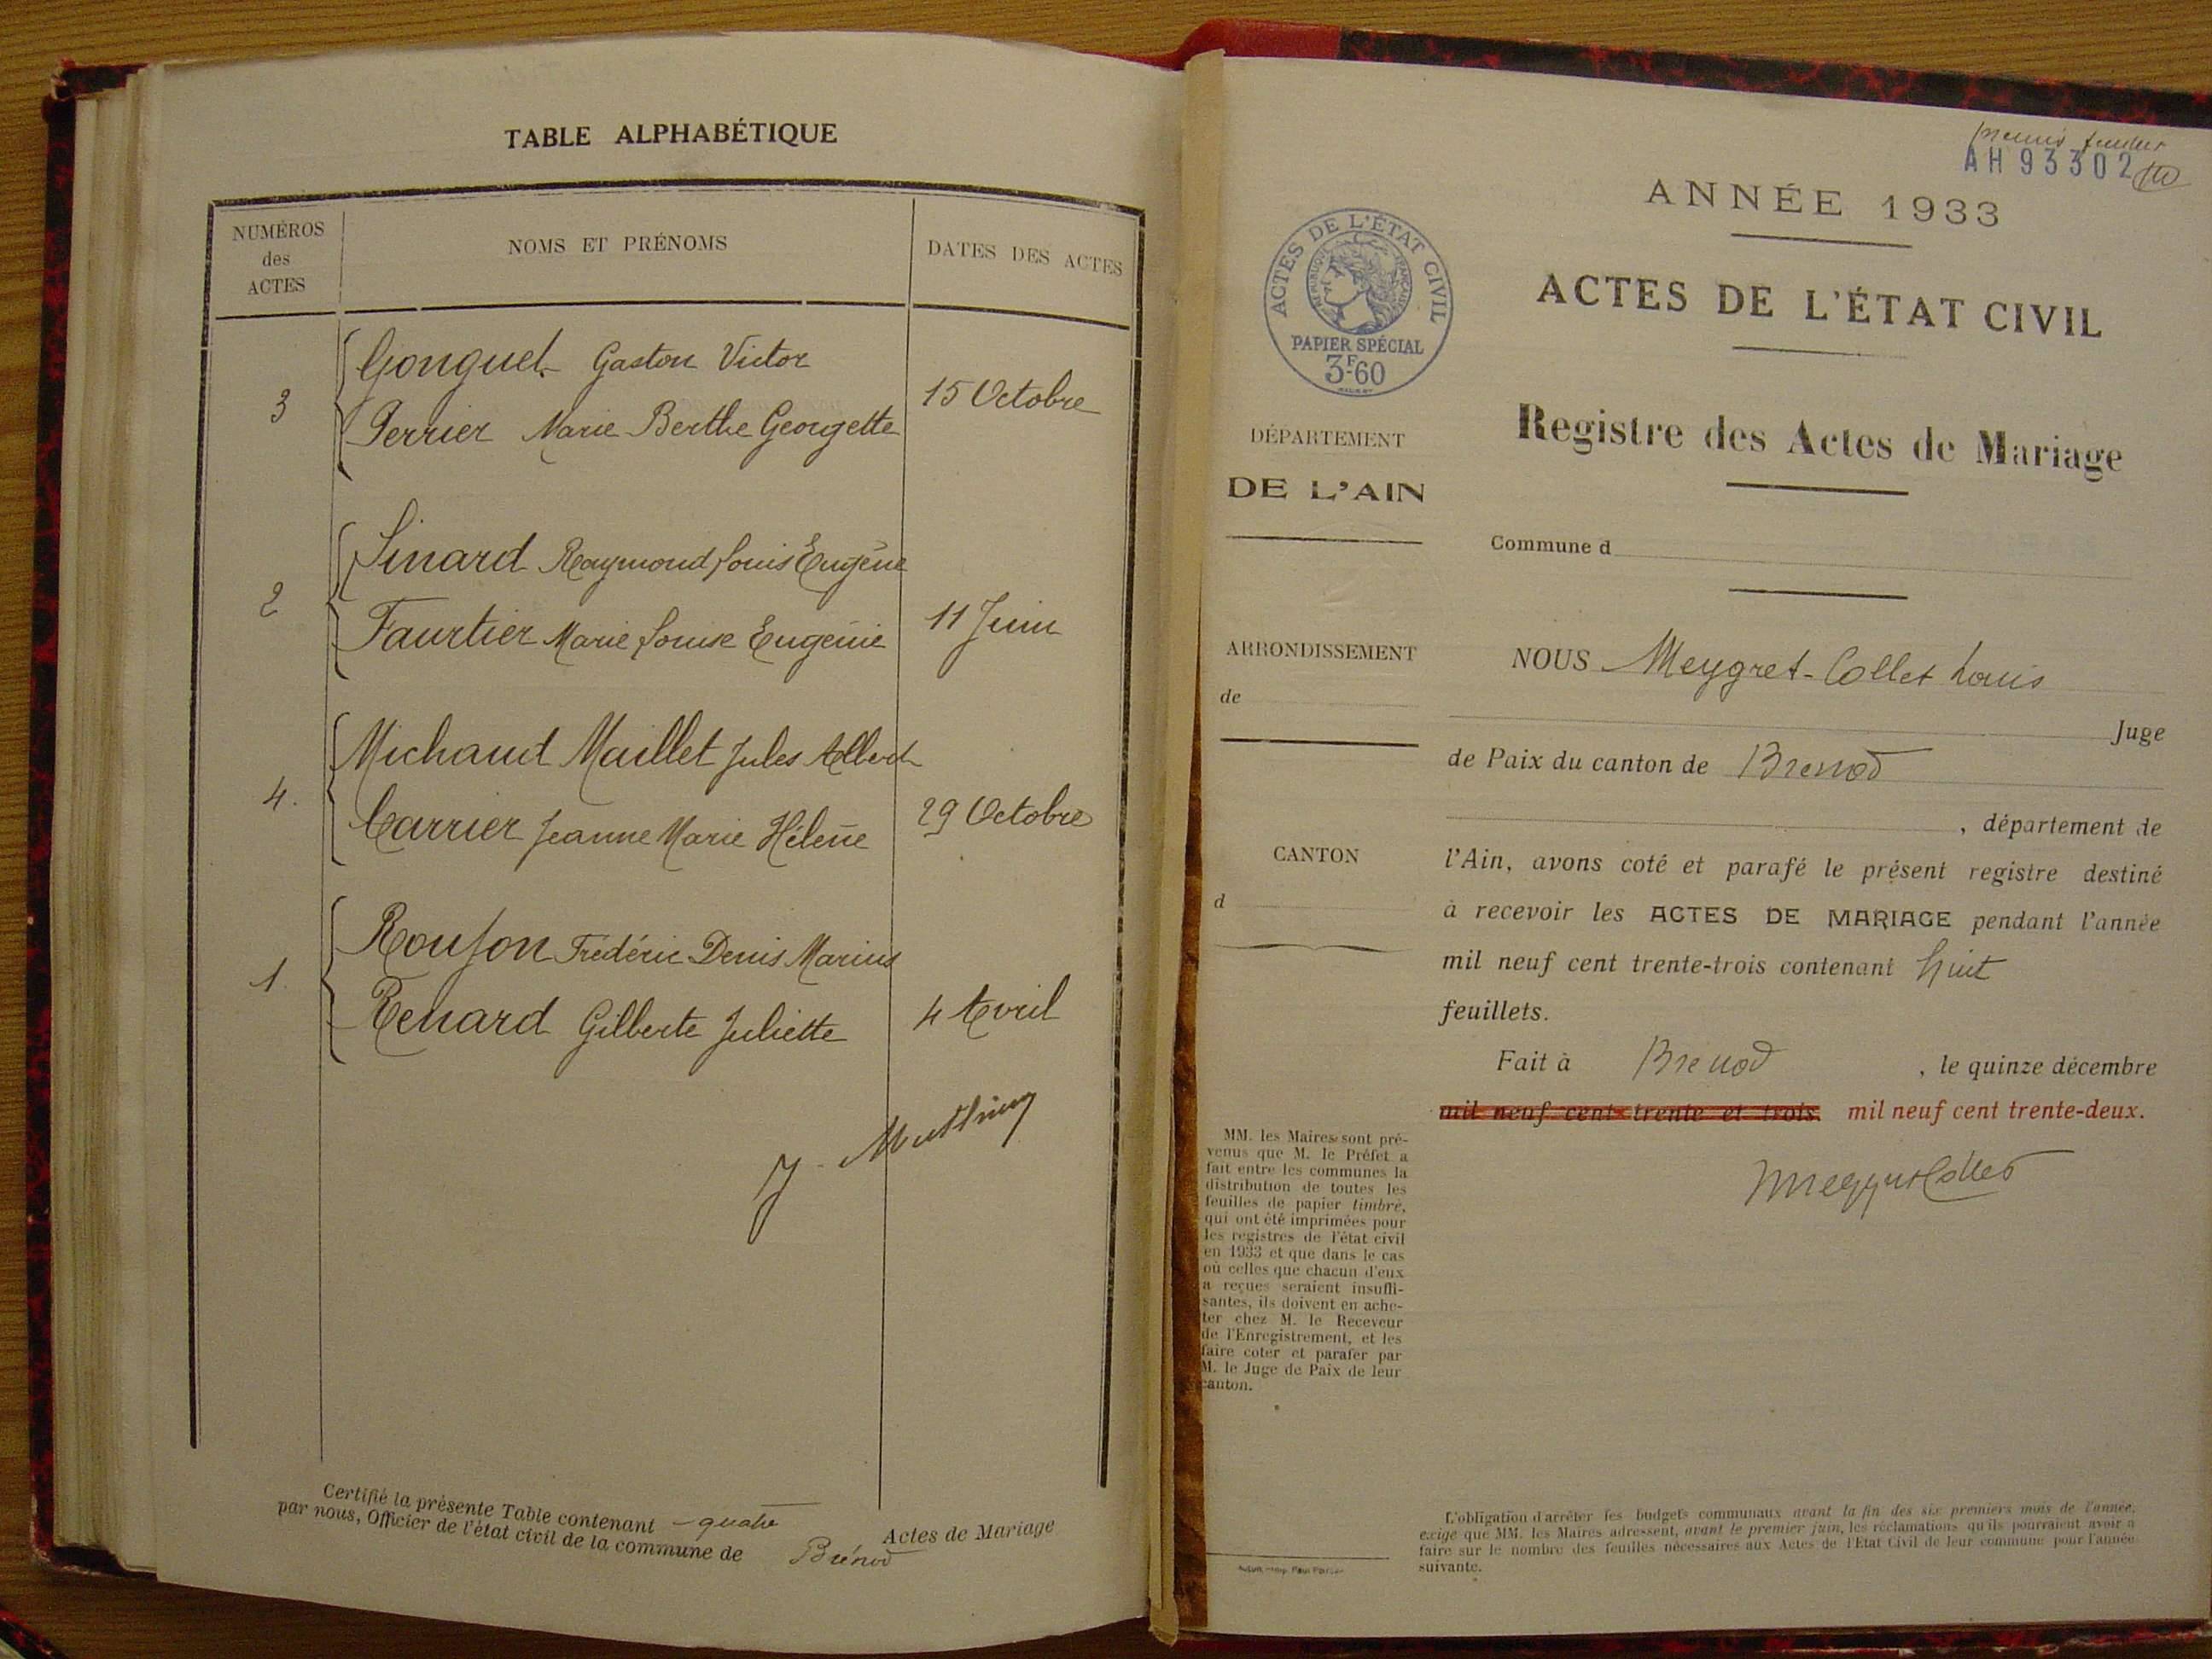 TABLE ALPHABÉTIQUE
NUMÉROS
des
ACTES
NOMS ET PRÉNOMS
DATES DES ACTES
Gonguet Gaston Victor
3
15 Octobre
Perrier Marie Berthe Georgette
Sinard Raymond Louis Eugène
2
11 Juin
Faurtier Marie Louise Eugénie
Michaud Maillet Jules Albert
4.
29 Octobre
Carrier Jeanne Marie Hélène
Frédéric Denis Marius
1.
4 Avril
Renard Gilberte Juliette
Certifié la présente Table contenant quatre Actes de Mariage
par nous, Officier de l'état civil de la commune de Brénod
premier
AH 93302
ANNÉE 1933
ACTES DE L'ÉTAT CIVIL
RÉPUBLIQUE FRANÇAISE
PAPIER SPÉCIAL
3F.60
ACTES DE L'ÉTAT CIVIL
Registre des Actes de Mariage
DÉPARTEMENT
DE L'AIN
Commune d
ARRONDISSEMENT
de
CANTON
d
NOUS Meygret-Collet Louis
Juge
de Paix du canton de Brenod
, département de
l'Ain, avons coté et parafé le présent registre destiné
à recevoir les ACTES DE MARIAGE pendant l'année
mil neuf cent trente-trois contenant huit
feuillets.
Fait à Brenod, le quinze décembre
mil neuf cent trente et trois. mil neuf cent trente-deux.
Meygret Collet
MM. les Maires sont pré-
venus que M. le Préfet a
fait entre les communes la
distribution de toutes les
feuilles de papier timbré,
qui ont été imprimées pour
les registres de l'état civil
en 1933 et que dans le cas
où celles que chacun d'eux
a reçues seraient insuffi-
santes, ils doivent en ache-
ter chez M. le Receveur
de l'Enregistrement, et les
faire coter et parafer par
M. le Juge de Paix de leur
canton.
L'obligation d'arrêter les budgets communaux avant la fin des six premiers mois de l'année,
exige que MM. les Maires adressent, avant le premier juin, les réclamations qu'ils pourraient avoir à
faire sur le nombre des feuilles nécessaires aux Actes de l'État Civil de leur commune pour l'année
suivante.